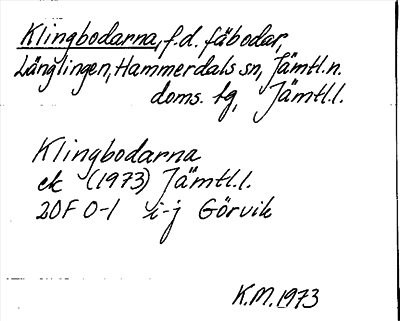 Klingbodarna, f.d. fäbodar,
Långlingen, Hammerdals sn, Jämtl.n.
doms. tg, Jämtl.l.
Klingbodarna
ek (1973) Jämtl.l.
20F 0-1 i-j Görvik
K.M. 1973